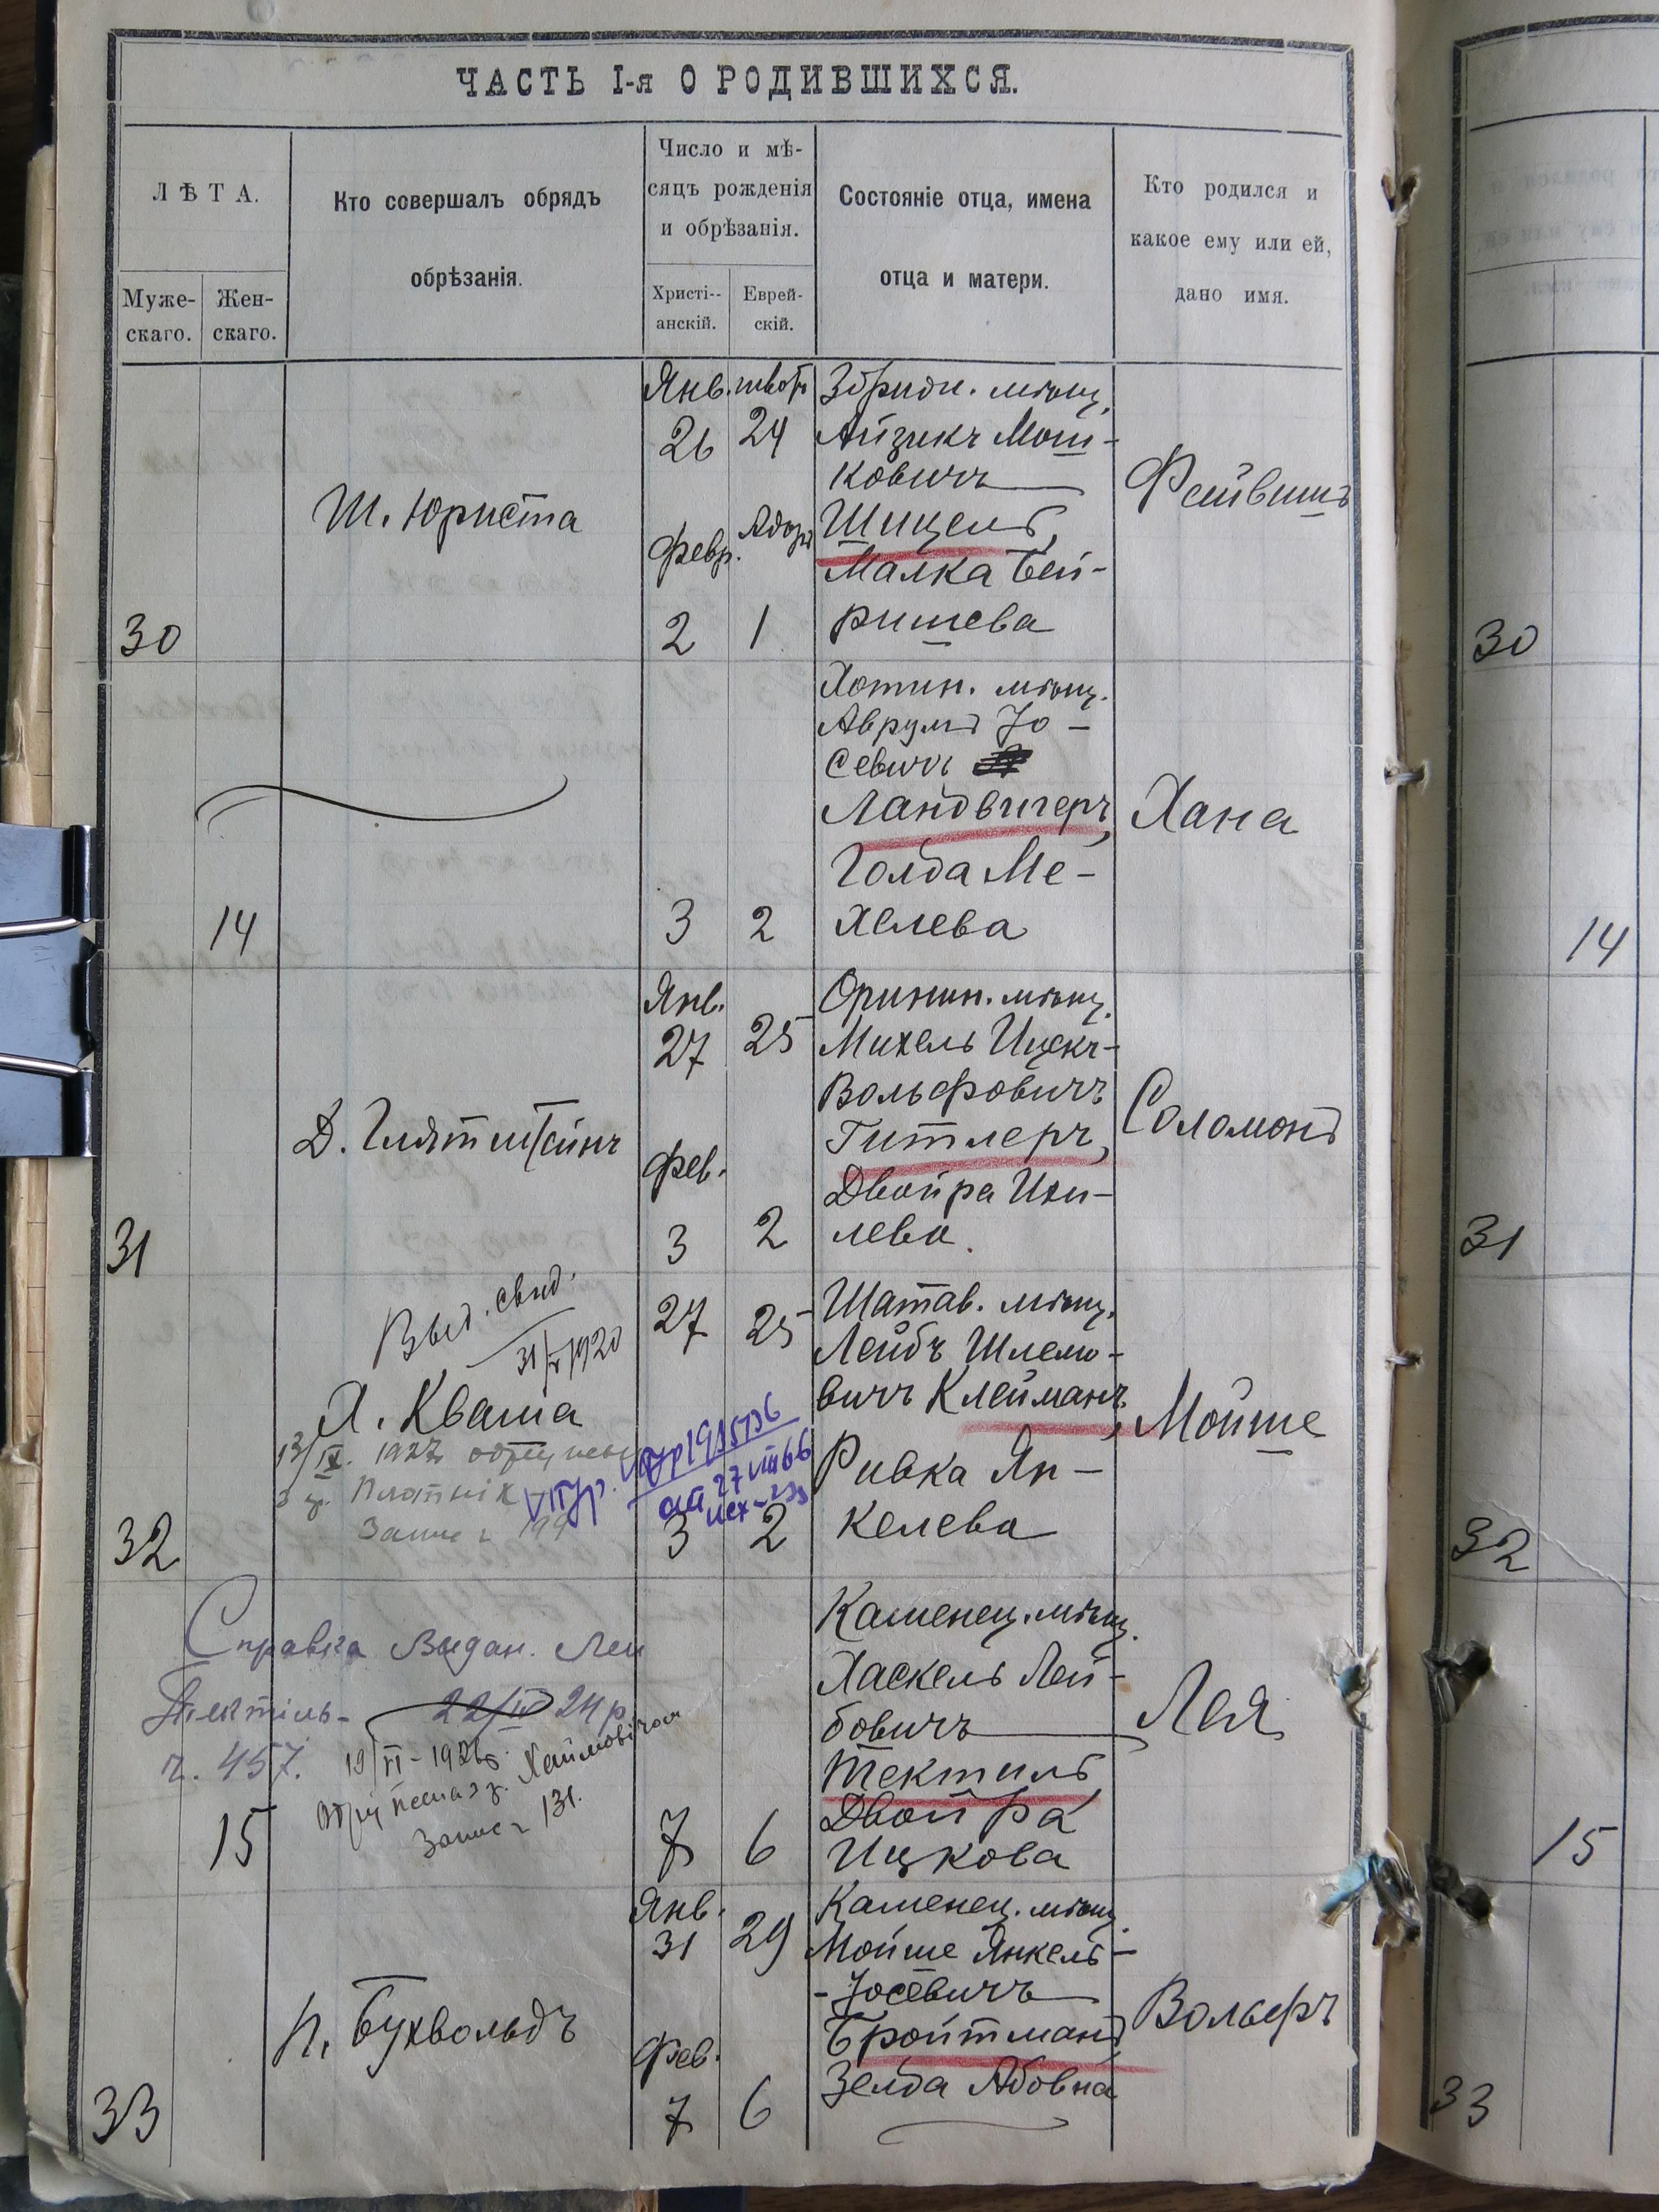 ЧАСТЬ I-я О РОДИВШИХСЯ.
ЛѢТА.
Муже-
скаго.
Жен-
скаго.
Кто совершалъ обрядъ
обрѣзанія.
Число и мѣ-
сяцъ рожденія
и обрѣзанія.
Христі--
анскій.
Еврей-
скій.
Состояніе отца, имена
отца и матери.
Кто родился и
какое ему или ей,
дано имя.
30
Ш. Юриста
Янв.
26
24
Февр.
Адоръ
2
1
мѣщ.
Айзикъ Мош-
ковичъ
Шицель,
Малка Бей-
ришева
Фейвишъ
14
3
2
Хотин. мѣщ.
Аврумъ Іо-
севичъ
Ландвигеръ,
Голда Ме-
хелева
Хана
31
Д. Глятштейнъ
Янв.
27
25
Фев.
3
2
Оринин. мѣщ.
Михель Ицекъ-
Вольфовичъ
Гитлеръ,
Двойра Ихи-
лева.
Соломонъ
Выд. свид.
31/V 1920
32
Я. Кваша
13/IX. 1927
Платнік
27
25
3
2
27 VIII 66
Шатав. мѣщ.
Лейбъ Шлемо-
вичъ Клейманъ,
Ривка Ян-
келева
Мойше
Справка Видан. Леи
Тектіль-
22/IV 24 р
ч. 457.
19/VI-1926
131.
15
7
6
Каменец. мѣщ.
Хаскель Лей-
бовичъ
Тектиль
Двойра
Ицкова
Лея
33
П. Бухвольдъ
Янв.
31
29
Фев.
7
6
Каменец. мѣщ.
Мойше Янкель-
-Іосевичъ
Бройтманъ,
Зелда Абовна
Вольфъ
30
14
31
32
15
33